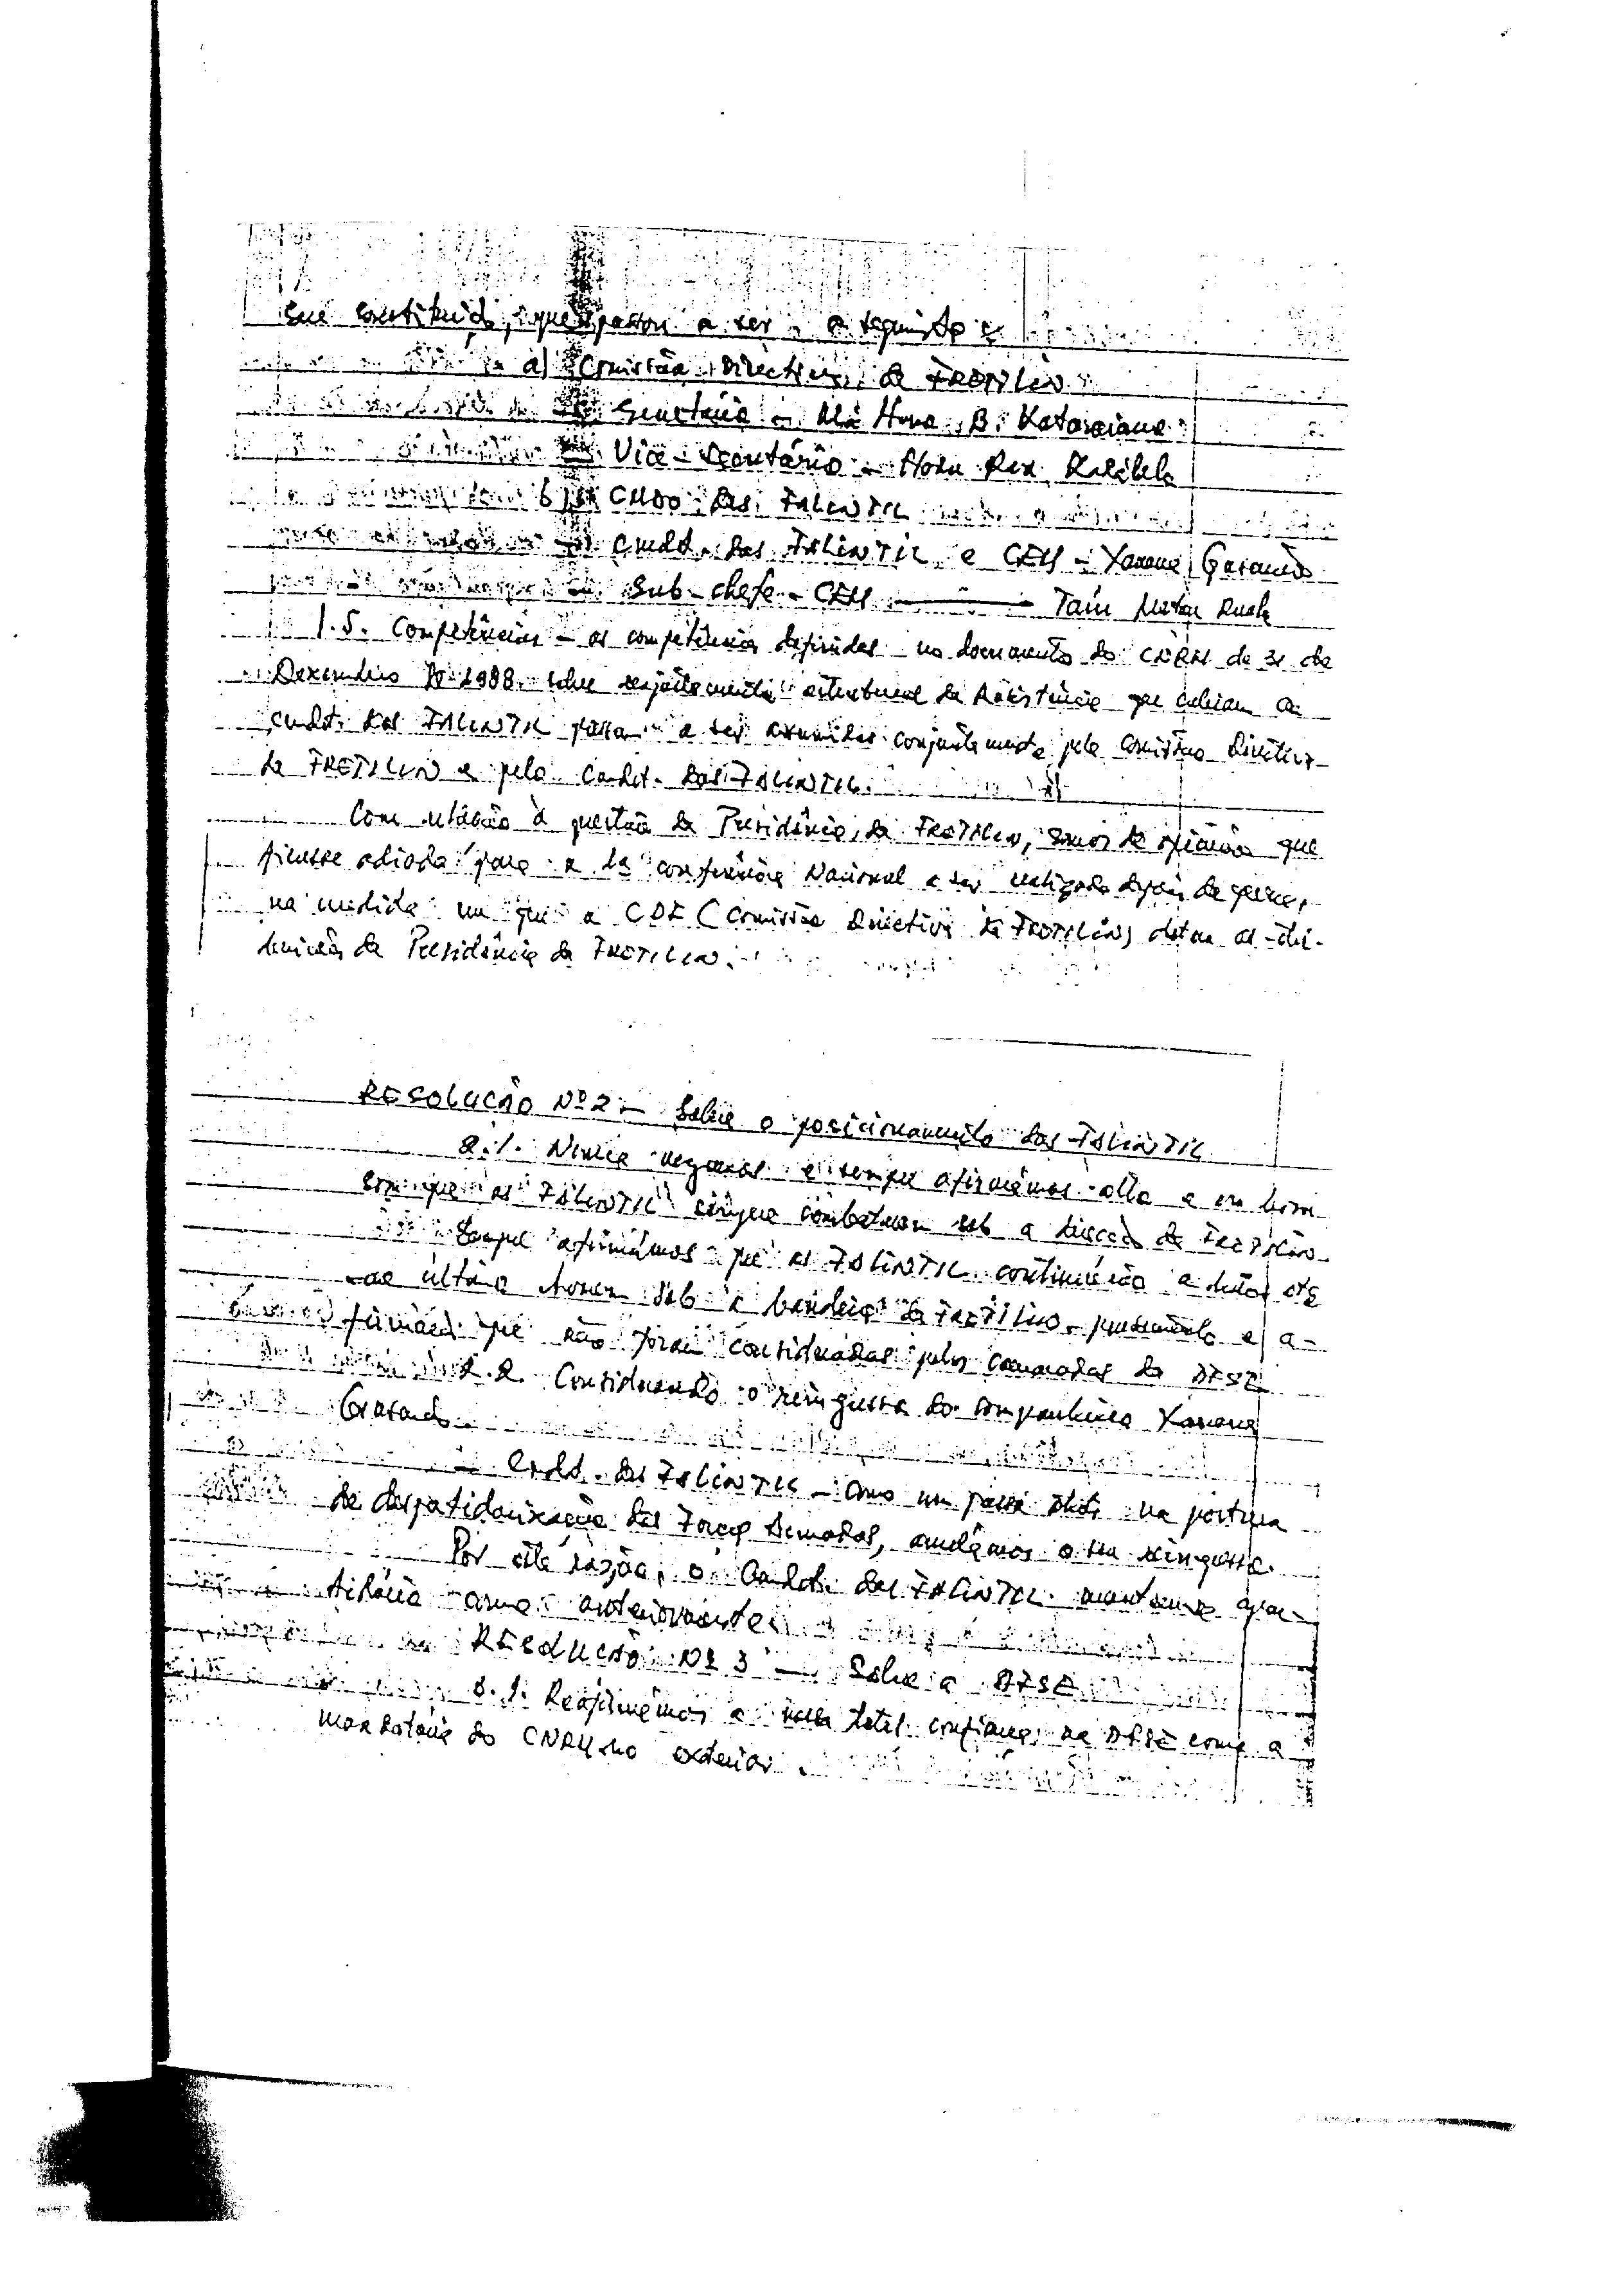 constituida, que passou a ser a seguinte:
a) Comissão Directiva da FRETILIN
Secretário - Má Huno B. Kataraiana
Vice-Secretário - Hodu Ran Kadalak
b) CMDO das FALINTIL
- Cmdt. das FALINTIL e CEM - Xanana Gusmão
- Sub-chefe - CEM — Taur Matan Ruak
1.5. Competências - as competências definidas no documento do CNRM de 31 de
Dezembro de 1988 sobre reajustamento estrutural da Resistência que cabiam ao
Cmdt. das FALINTIL passam a ser assumidas conjuntamente pela Comissão Directiva
da FRETILIN e pelo Cmdt. das FALINTIL.
Com relação à questão da Presidência da FRETILIN, somos de opinião que
ficasse adiada para a 1a conferência Nacional a ser realizada depois da guerra,
na medida em que a CDF (Comissão Directiva da FRETILIN) detem as
da Presidência da FRETILIN.
RESOLUÇÃO Nº 2 - Sobre o posicionamento das FALINTIL
2.1. Nunca negámos e sempre afirmámos alto e em bom
som que as FALINTIL sempre combateram sob a direcção da FRETILIN.
Sempre afirmámos que as FALINTIL continuarão a lutar até
ao último homem sob a bandeira da FRETILIN, e a-
que não foram consideradas pelos camaradas da DFSE
2.2. Considerando o reingresso do companheiro Xanana
Gusmão
- Cmdt. das FALINTIL - como um passo na postura
de despartidarização das Forças Armadas, o seu reingresso.
Por esta razão, o Cmdt. das FALINTIL mantem-se apar-
tidário como anteriormente.
RESOLUÇÃO Nº 3 - Sobre a DFSE
3.1. Reafirmámos a nossa total confiança na DFSE como a
mandatária do CNRM no exterior.